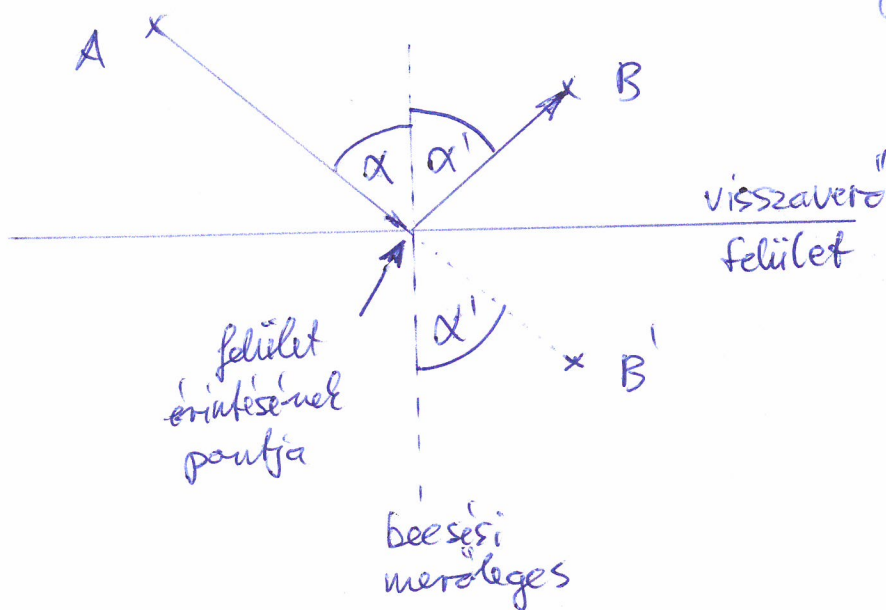 A
B
α
α'
visszaverő
felület
α'
B'
felület
érintésének
pontja
beesési
merőleges